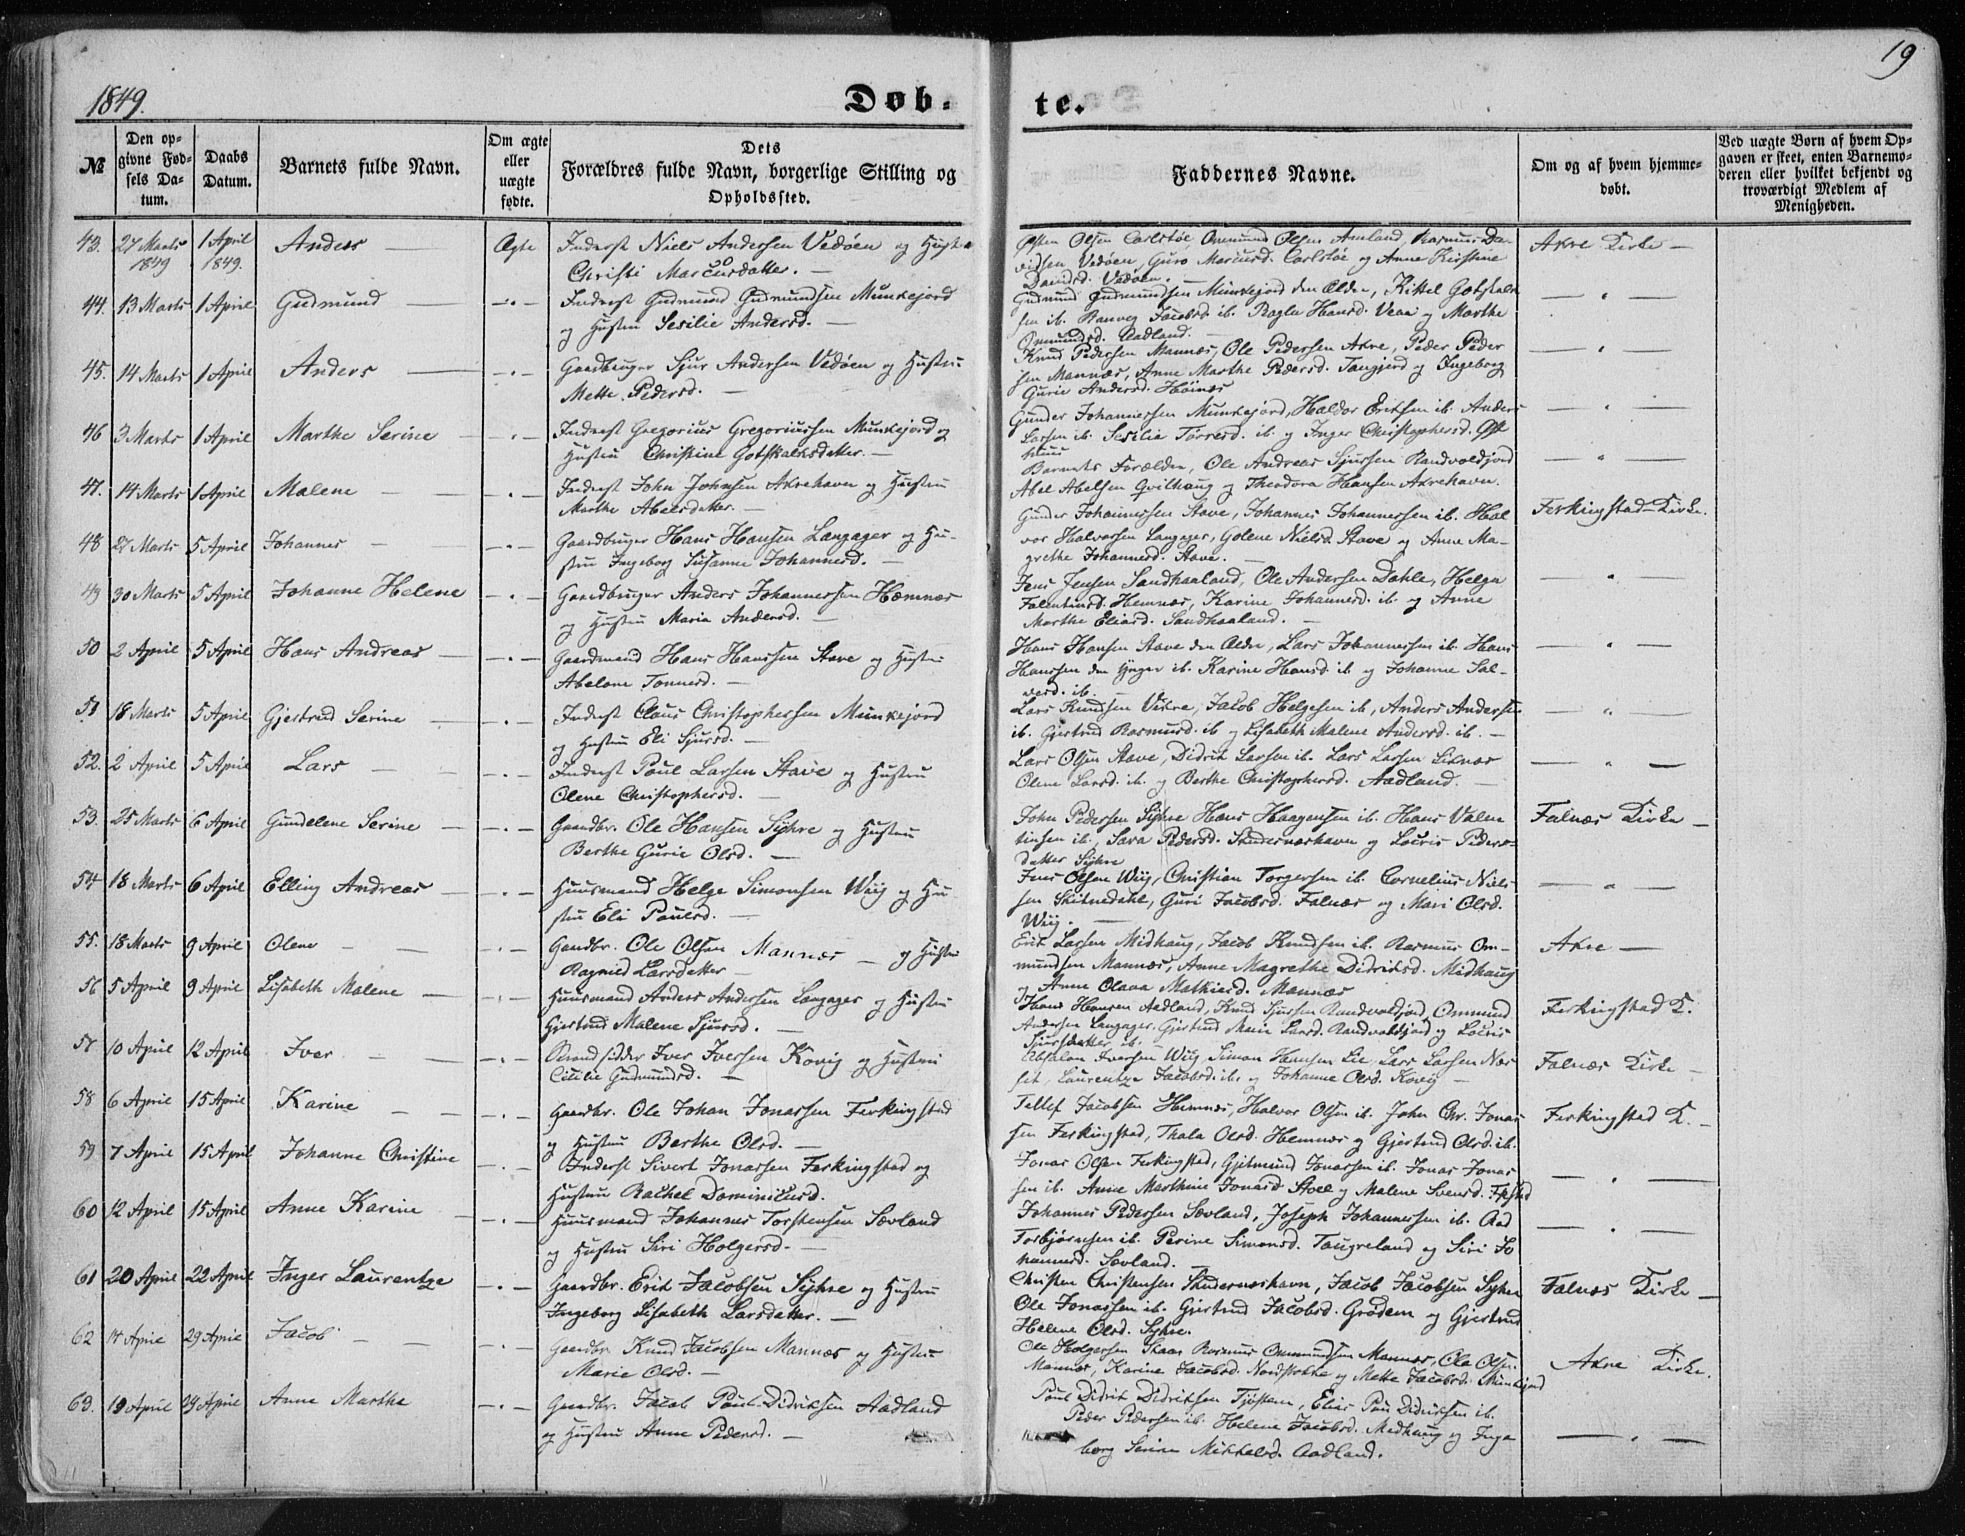 1849.
Døb-
te.
19
№
Den op-
givne Fød-
sels Da-
tum.
Daabs
Datum.
Barnets fulde Navn.
Om ægte
eller
uægte
fødte.
Dets
Forældres fulde Navn, borgerlige Stilling og
Opholdssted.
Faddernes Navne.
Om og af hvem hjemme-
døbt.
Ved uægte Børn af hvem Op-
gaven er skeet, enten Barnemo-
deren eller hvilket bekjendt og
troværdigt Medlem af
Menigheden.
43. 27 Marts 1849 1 April 1849. Anders — Ægte Inderst Niels Andersen Vedøen og Hustru
Christi Marcusdatter. —
Østen Olsen Carlstøe, Ommund Olsen Aanland, Rasmus Da-
vidsen Vedøen, Guro Marcusd. Carlstøe og Anne Kirstine
Davidsd. Vedøen. —
Akre Kirke —
44. 13 Marts 1 April Gudmund — Inderst Gudmund Gudmundsen Munkejord
og Hustru Sesilie Andersd. —
Gudmund Gudmundsen Munkejord den Ældre, Kittel Gotskalk
sen ib. Ranveg Jacobsd. ib. Ragla Hansd. Veaa og Marthe
Ommundsd. Aadland. —
— " —
45. 14 Marts 1 April Anders — Gaardbruger Sjur Andersen Vedøen og Hustru
Mette Pedersd. —
Knud Pedersen Mannæs, Ole Pedersen Akre, Peder Peder
sen Mannæs, Anne Marthe Pedersd. Tangjerd og Ingeborg
Gurie Andersd. Høinæs
— " —
46 3 Marts 1 April Marthe Serine — Inderst Gregorius Gregoriussen Munkejord og
Hustru Christine Gotskalksdatter. —
Gunder Johannessen Munkejord, Haldor Eriksen ib. Anders
Larsen ib. Sesilia Torresd. ib. og Inger Christophersd. Øst
huus
— " —
47. 14 Marts 1 April Malene — Inderst John Johnsen Akrehavn og Hustru
Marthe Abelsdatter. —
Barnets Forældre, Ole Andreas Sjursen Sandvoldjord
Abel Abelsen Qvilhaug og Theodora Hansen Akrehavn.
— " —
48 27 Marts 5 April Johannes — Gaardbruger Hans Hansen Langager og Hu-
stru Ingeborg Susanne Johannesd. —
Gunder Johannessen Stave, Johannes Johannessen ib. Hal
vor Halvorsen Langager, Golene Nielsd. Stave og Anne Ma-
grethe Johannesd. Stave. —
Ferkingstad Kirke.
49 30 Marts 5 April Johanne Helene — Gaardbruger Anders Johannessen Hemnæs
og Hustru Maria Andersd. —
Jens Jensen Sandhaaland, Ole Andersen Dahle, Helga
Falentinsd. Hemnæs, Karine Johannesd. ib. og Anne
Marthe Eliasd. Sandhaaland. —
— " —
50 2 April 5 April Hans Andreas — Gaardmand Hans Hanssen Stave og Hustru
Abelone Tonnesd. —
Hans Hansen Stave den Ældre, Lars Johannessen ib. Hans
Hanssen den yngre ib. Karine Hansd. ib. og Johanne Sal-
vesd. ib. —
— " —
51 18 Marts 5 April Gjertrud Serine — Inderst Claus Christophersen Munkejord
og Hustru Eli Sjursd. —
Lars Knudsen Vikre, Jacob Helgesen ib., Anders Andersen
ib. Gjertrud Rasmusd. ib. og Lisabeth Malene Andersd. ib. —
— " —
52. 2 April 5 April Lars — Inderst Poul Larsen Stave og Hustru
Olene Christophersd. —
Lars Olsen Stave, Didrik Larsen ib. Lars Larsen Liknæs
Olene Larsd. ib. og Berthe Christophersd. Aadland. —
— " —
53. 25 Marts 6 April Gundelene Serine — Gaardbr. Ole Hansen Syhre og Hustru
Berthe Gurie Olsd. —
John Pedersen Syhre Hans Haagensen ib. Hans Valen
tinsen ib., Sara Pedersd. Skudesnæshavn og Lovris Peders-
datter Syhre
Falnæs Kirke —
54 18 Marts 6 April Elling Andreas — Huusmand Helge Simonsen Wiig og Hu-
stru Eli Poulsd. —
Jens Olsen Wiig, Christian Torgersen ib. Cornelius Niels-
sen Skitnedahl, Guri Jacobsd. Falnæs og Mari Olsd.
Wiig. —
— " —
55. 18 Marts 9 April Olene — Gaardbr. Ole Olsen Mannæs — og Hustru
Ragnild Larsdatter —
Erik Larsen Midhaug, Jacob Knudsen ib. Rasmus Om-
mundsen Mannæs, Anne Magrethe Didriksd. Midhaug
og Anne Olava Mathiasd. Mannæs
Akre —
56 5 April 9 April Lisabeth Malene — Huusmand Anders Andersen Langager og Hustru
Gjertrud Malene Sjursd. —
Hans Hansen Aadland, Knud Sjursen Sandvoldjord, Ommund
Andersen Langager, Gjertrud Marie Larsd. Sandvoldjord og Lovris
Sjursdatter ib.
Ferkingstad K.
57 10 April 12 April Iver — Strandsidder Iver Iversen Kovig og Hustru
Cicilie Gudmundsd. —
Absalon Iversen Wiig, Simon Hansen Lie, Lars Larsen Nes
set, Laurentze Jacobsd. ib. og Johanne Olsd. Kovig —
Falnæs Kirke —
58 6 April 15 April Karine — Gaardbr. Ole Johan Jonassen Ferkingstad
og Hustru Berthe Olsd. —
Tellef Jacobsen Hemnæs, Halvor Olsen ib. John Chr. Jonas
sen Ferkingstad, Thala Olsd. Hemnæs og Gjertrud Olsd. ib.
Ferkingstad K. —
59 7 April 15 April Johanne Christine — Inderst Sivert Jonassen Ferkingstad og
Hustru Rachel Dominicusd.
Jonas Olsen Ferkingstad, Gjetmund Jonassen ib. Jonas Jonas
sen ib. Anne Marthine Jonasd. Stoel og Malene Svensd. Fkstad
— " —
60 12 April 15 April Anne Karine — Huusmand Johannes Torstensen Sævland
og Hustru Siri Holgersd. —
Johannes Pedersen Sævland, Joseph Johannessen ib. Aad
Torbjørnsen ib. Perine Simonsd. Taugreland og Siri Jo
hannesd. Sævland. —
— " —
61 20 April 22 April Inger Laurentze — Gaardbr. Erik Jacobsen Syhre og Hustru
Ingeborg Lisabeth Larsdatter. —
Christen Christensen Skudesnæshavn, Jacob Jacobsen Syhre
Ole Jonassen ib. Gjertrud Jacobsd. Grødem og Gjertrud
Helene Olsd. Syhre.
Falnæs Kirke —
62 14 April 29 April Jacob — Gaardbr. Knud Jacobsen Mannæs og Hustru
Marie Olsd. —
Ole Holgersen Skaar Rasmus Ommundsen Mannæs, Ole Olsen
Mannæs, Karine Jacobsd. Nordstokke og Mette Jacobsd. Munkejord
Akre Kirke.
63. 19 April 29 April Anne Marthe — Gaardbr. Jacob Poul Didriksen Aadland
og Hustru Anne Pedersd. —
Poul Didrik Didriksen Tjøsteim, Elias Poul Didriksen ib.
Peder Pedersen ib. Helene Jacobsd. Medhaug og Inge
borg Serine Mikkelsd. Aadland.
— " —